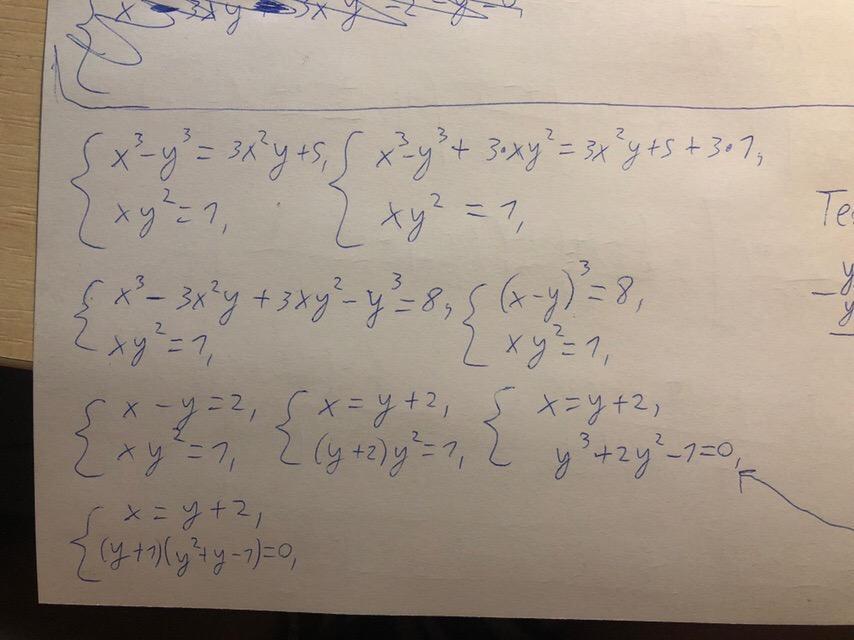 { x³-y³ = 3x²y+5, { x³-y³+ 3·xy² = 3x²y+5+3·1,
{ xy² = 1, { xy² = 1,
{ x³ - 3x²y + 3xy² - y³ = 8, { (x-y)³ = 8,
{ xy² = 1, { xy² = 1,
{ x - y = 2, { x = y+2, { x = y+2,
{ xy² = 1, { (y+2)y² = 1, { y³+2y²-1=0,
{ x = y+2,
{ (y+1)(y²+y-1)=0,